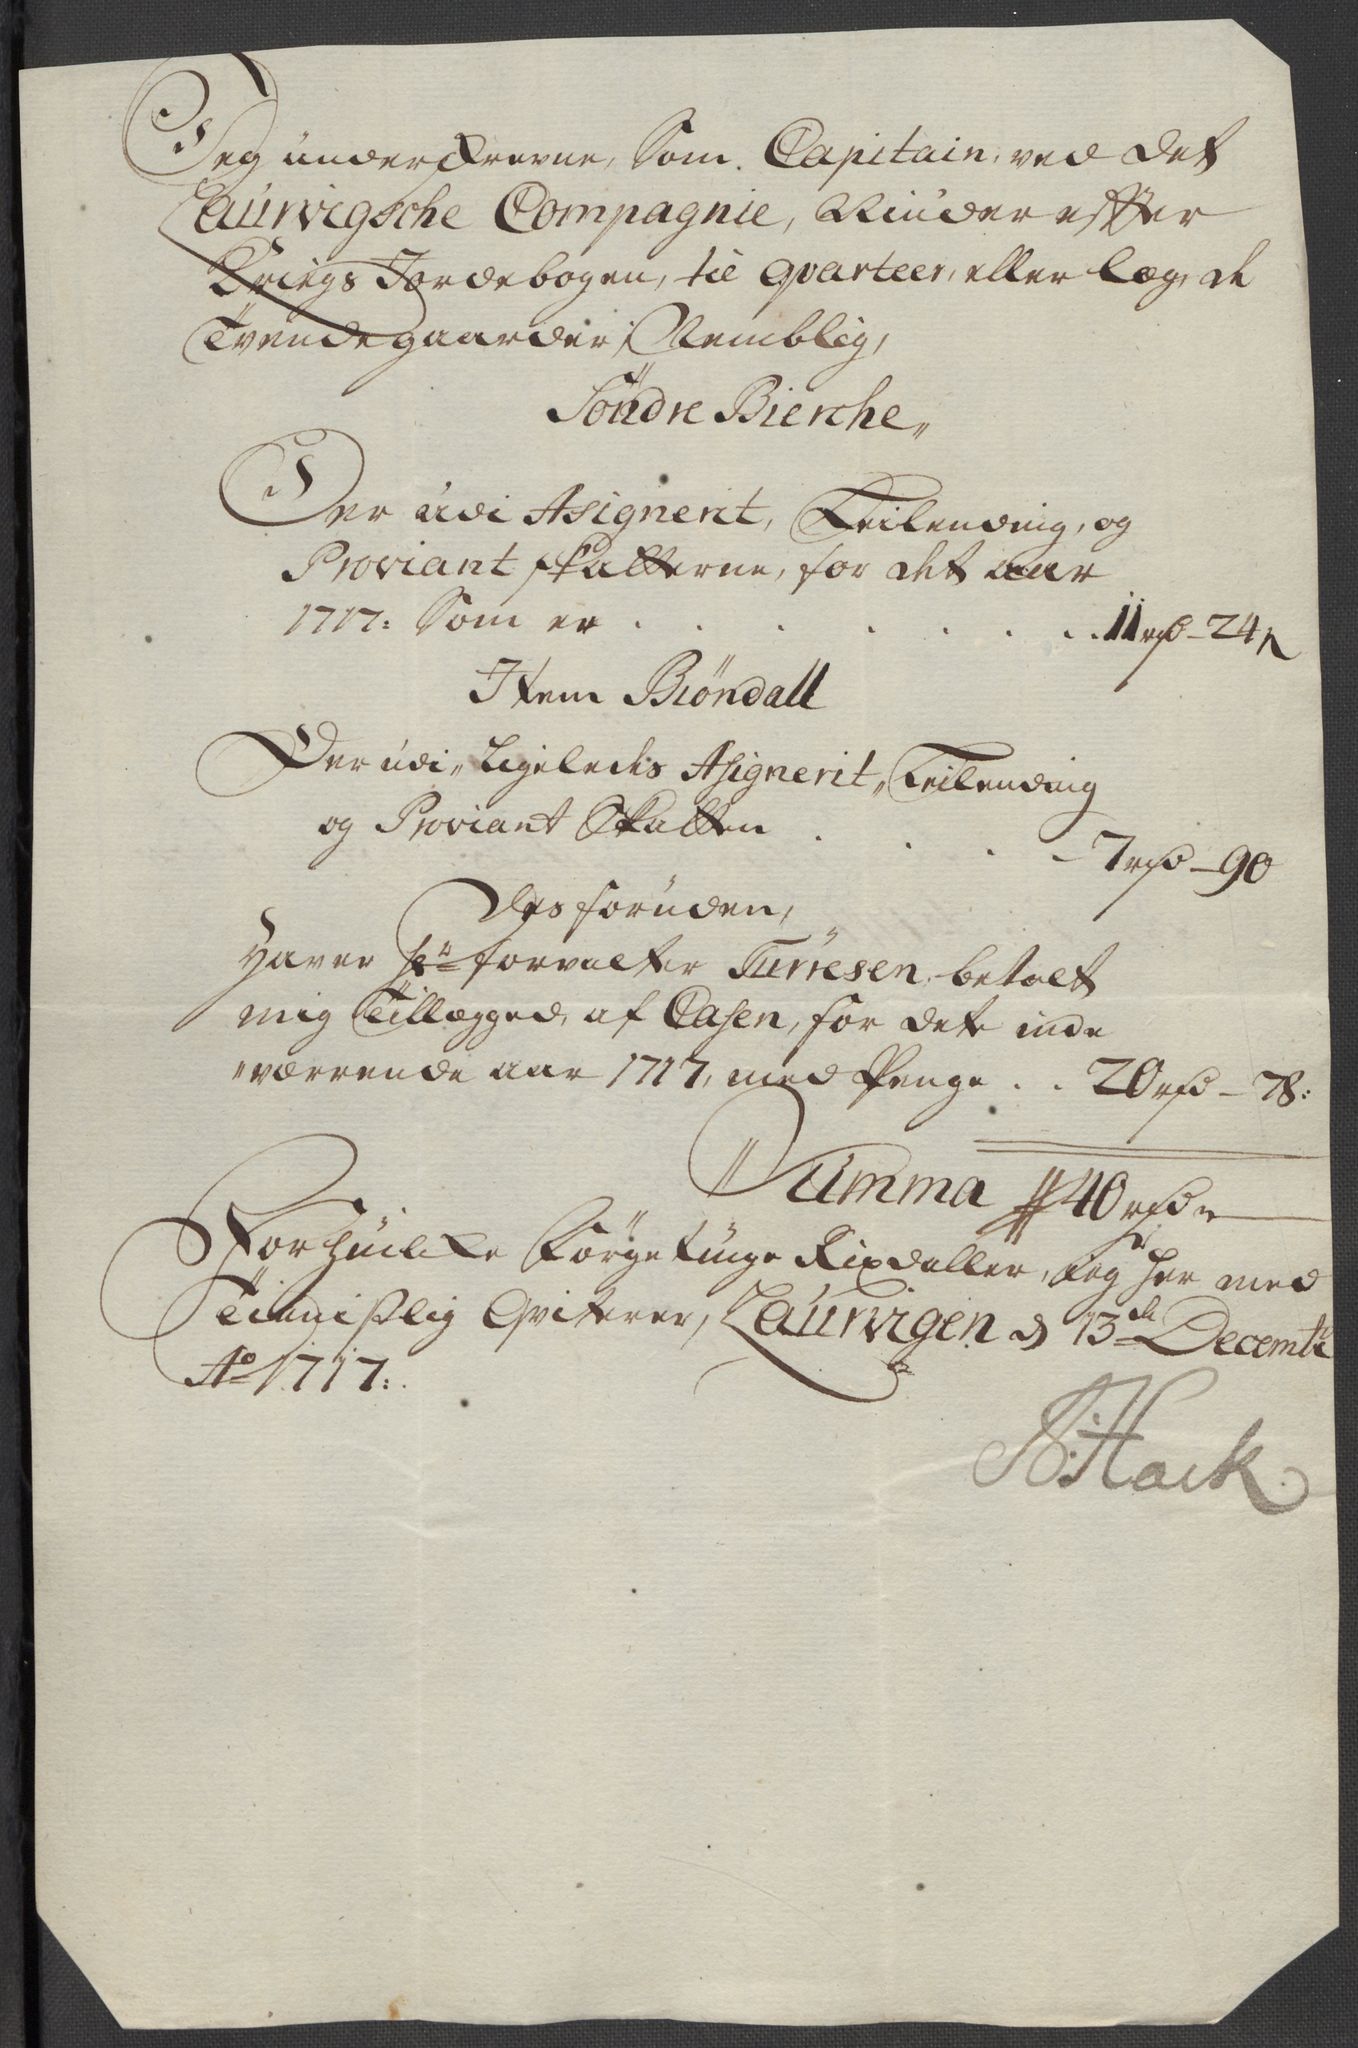 Jeg underskrevne, Som Capitain, ved det
Laurvigsche Compagnie, Niuder effter
Kriegs Jordebogen, til qvarteer, eller læg, de
Tvende gaarder, Nemblig,
Söndre Bierche„
Der udi Asignerit, Leilending, og
Proviant skatterne, for det aar
1717: Som er . . . . . . . 11 rd – 24 s
Item Biöndall
Der udi„ Ligeledis Assignerit„ Leilending
og Proviant Skatten . . . . 7 rd – 90
Des foruden,
Haver hr forvalter Türresen, betalt
mig Tillægged, af Casen, for dete inde
„værrende aar 1717, med Penge . . 20 rd – 78:
Summa 40 rd
For huilckeFörgetiuge Rixdaller, Jeg her med
Tienistlig Qviterer, Laurvigen d 13de Decembr
Ao 1717:
Hack